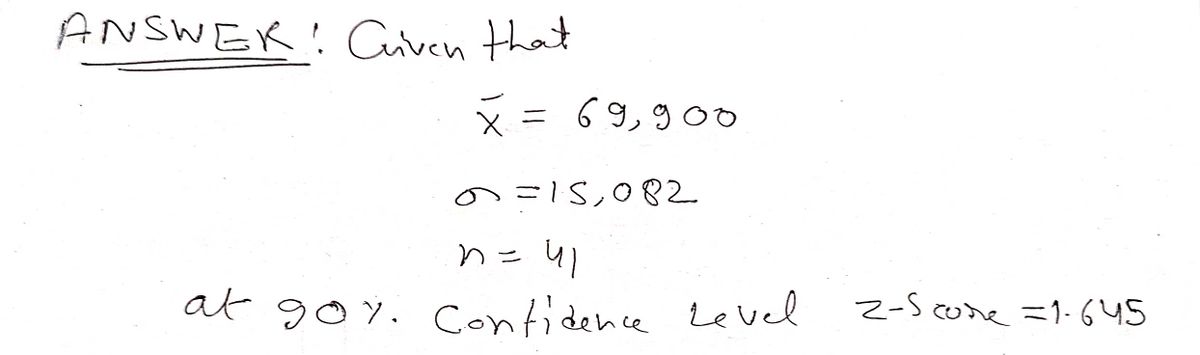 ANSWER! Given that
x̄ = 69,900
σ = 15,082
n = 41
at 90%. Confidence Level Z-Score = 1.645